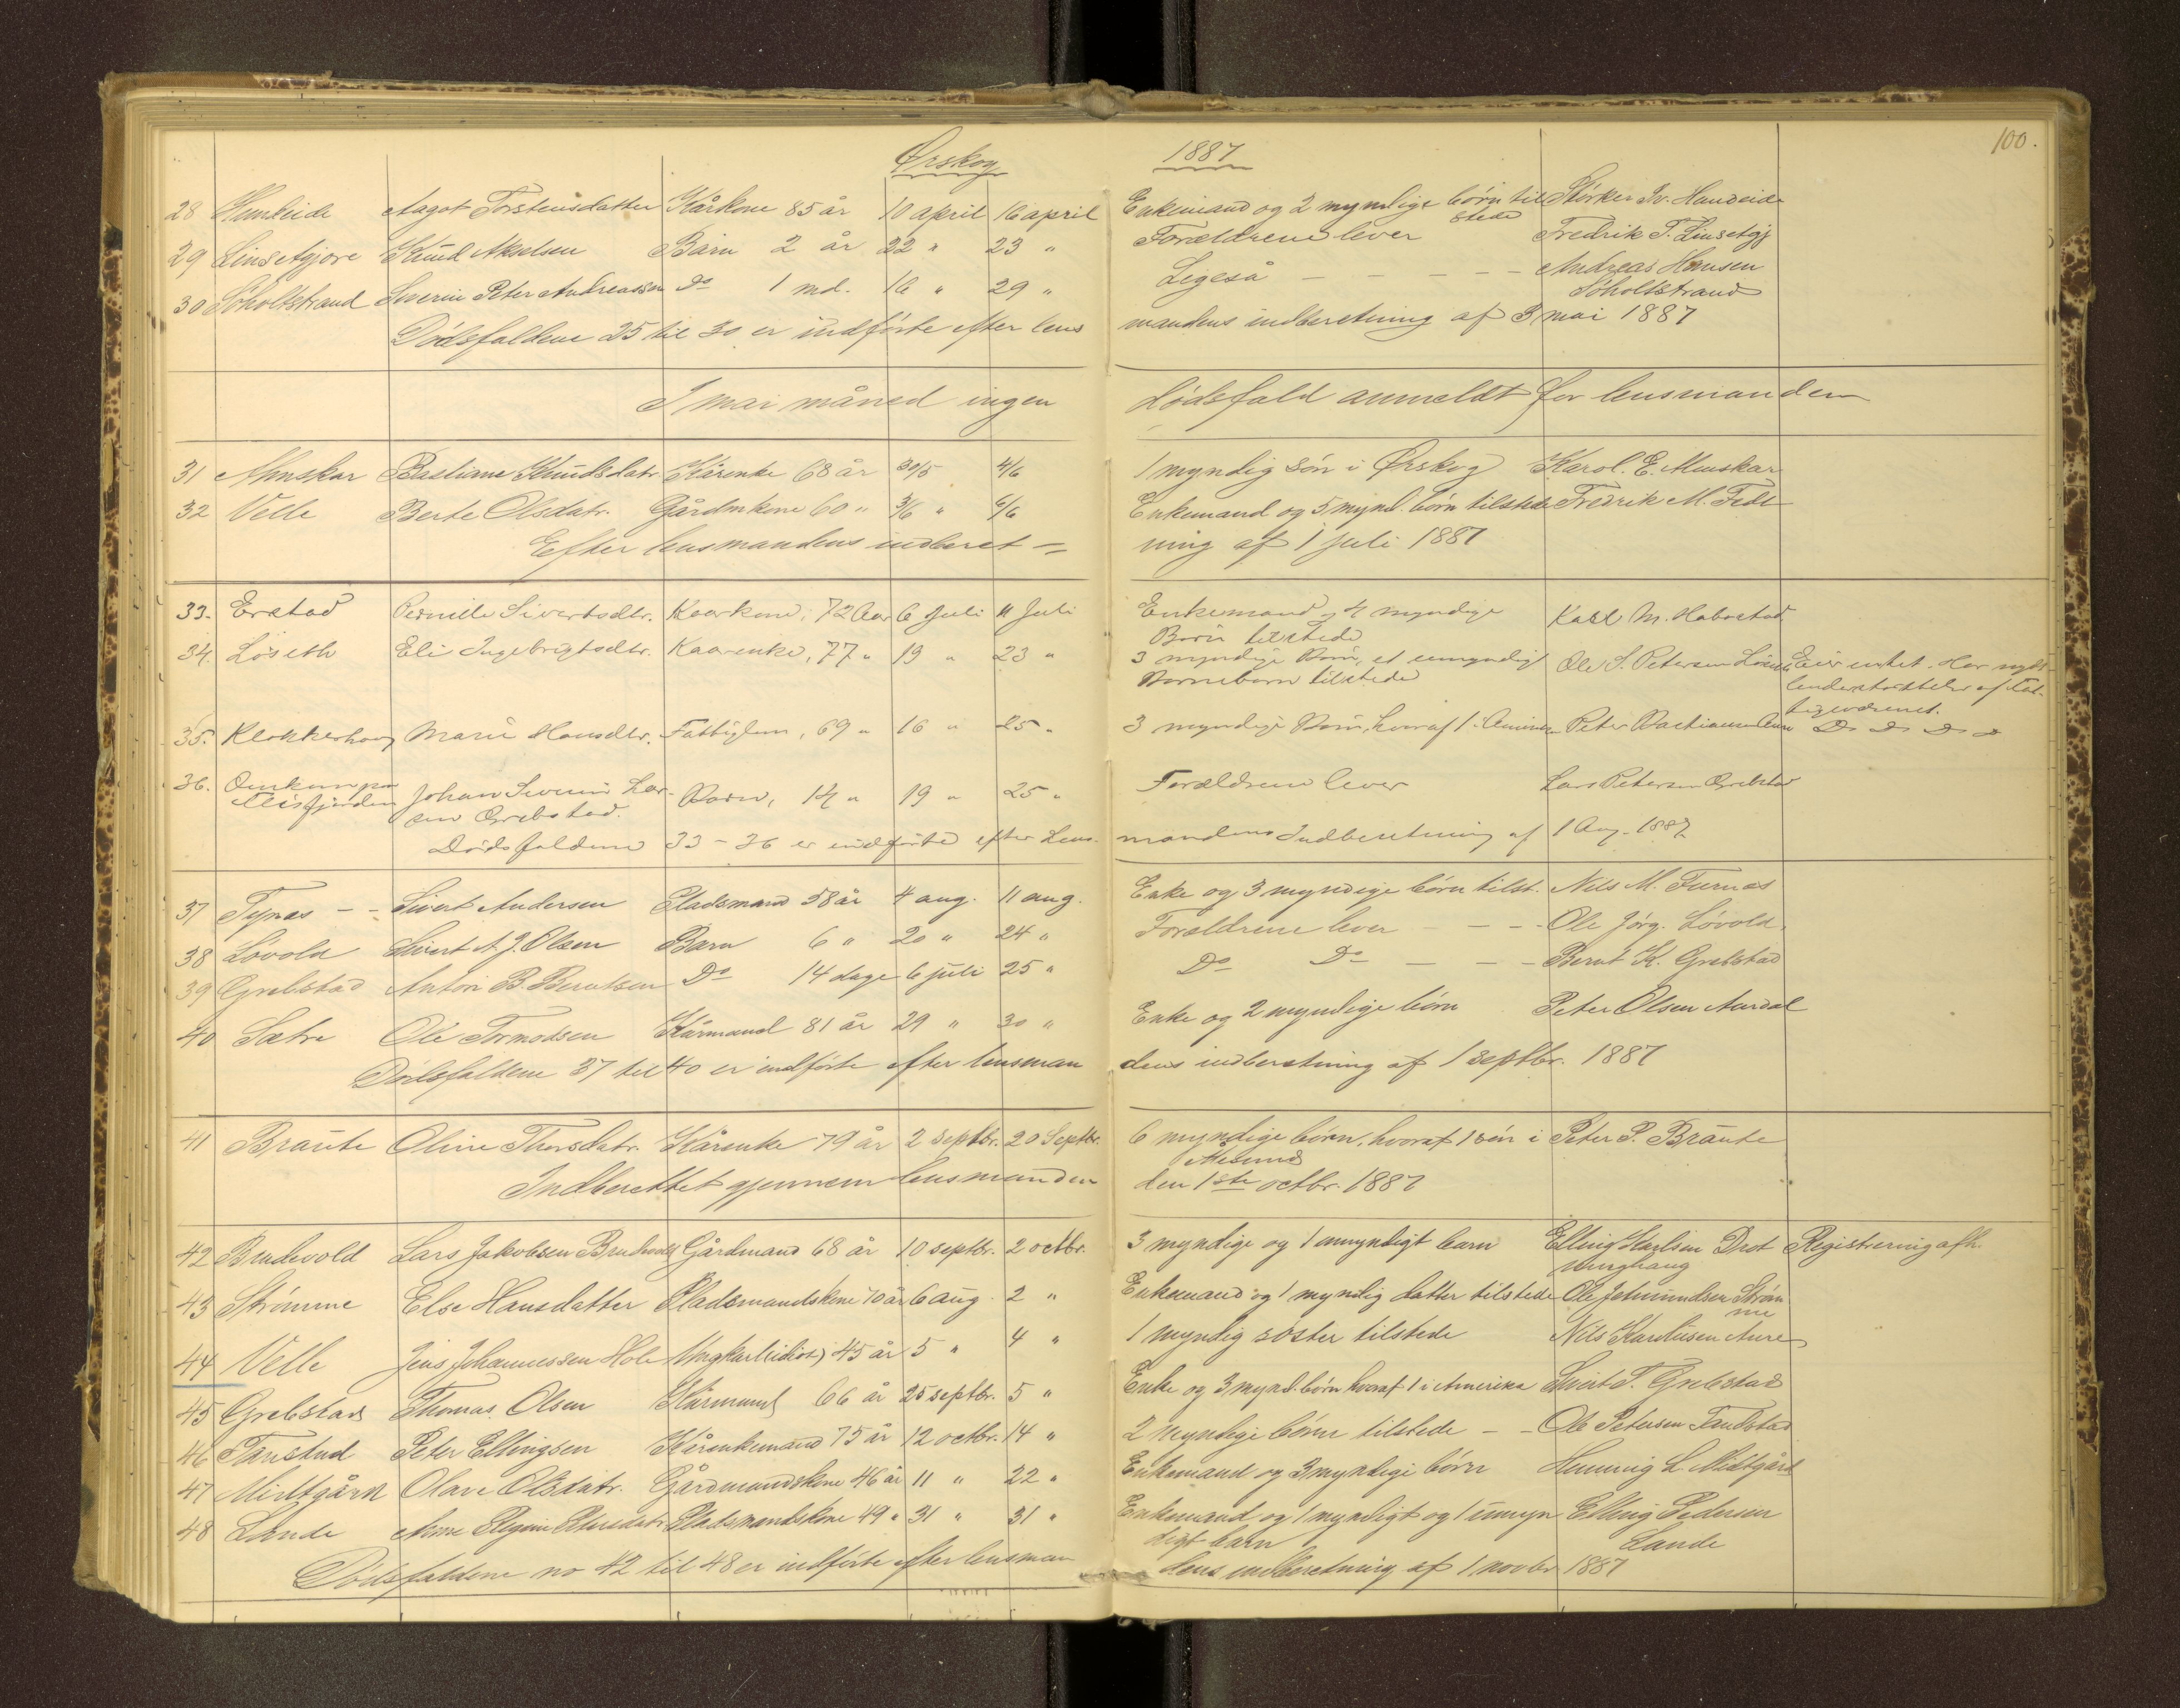 100.
Ørskog 1887
28 Aagot Torstensdatter Kårkone 85 år 10 april 16 april Enkemand og 2 myndige børn til Størker Iv. Handeide
stede
29 Linsetgjøre Knud Akselsen Barn 2 år 22 " 23 " Forældrene lever Fredrik T. Linsetgj
30 Søholtstrand Severin Peter Andreassen Do 1 md. 16 " 29 " Ligeså – – – – – Andreas Hansen
Søholtstrand
Dødsfaldene 25 til 30 er indførte efter lens mandens indberetning af 3 mai 1887
I mai måned ingen dødsfald anmeldt for lensmanden
31 Bastiane Knudsdatr. Kårenke 68 år 30/5 4/6 1 myndig søn i Ørskog Karol. E.
32 Velle Berte Olsdatr. Gårdmkone 60 " 3/6 " 6/6 Enkemand og 5 mynd. børn tilstede Fredrik M. Fedt
Efter lensmandens indberet = ning af 1 juli 1887
33. Erstad Pernille Sivertsdtr. Kaarkone, 72 Aar 6 Juli 11 Juli Enkemand, 4 myndige Karl M. Habostad
Børn tilstede
34. Løseth Eli Ingebrigtsdtr. Kaarenke, 77 " 19 " 23 " 3 myndige Børn, et umyndigt Ole S. Petersen Løseth Eier intet. Har nydt
Barnebarn tilstede understøttelse af Fat-
tigvæsenet.
35. Klokkerhaug Marie Hansdtr. Fattiglem, 69 " 16 " 25 " 3 myndige Børn, hvoraf 1 i Amerika Peter Bastiansen Aure Do Do Do Do
36. Johan Severin Lar- Barn, 14 " 19 " 25 " Forældrene lever Lars Petersen Grebstad
sen Grebstad.
Dødsfaldene 33 – 36 er indførte efter Lens- mandens Indberetning af 1 Aug. 1887
37 Tynes – – Sivert Andersen Pladsmand 58 år 4 aug. 11 aug. Enke og 3 myndige børn tilst. Nils M.
38 Løvold Sivert A. J. Olsen Barn 6 " 20 " 24 " Forældrene lever – – – Ole Jørg. Løvold.
39 Grebstad Anton B. Berntsen Do 14 dage 6 juli 25 " Do Do – – – Bernt K. Grebstad
40 Sætre Ole Tormodsen Kårmand 81 år 29 " 30 " Enke og 2 myndige børn Peter Olsen Aurdal
Dødsfaldene 37 til 40 er indførte efter lensman dens indberetning af 1 septbr. 1887
41 Braute Oline Thorsdatr. Kårenke 79 år 2 septbr. 20 Septbr. 6 myndige børn, hvoraf 1 søn i Peter P. Braute
Ålesund
Indberettet gjennem lensmanden den 1ste octbr. 1887
42 Brudevold Lars Jakobsen Brudevold Gårdmand 68 år 10 septbr. 2 octbr. 3 myndige og 1 umyndigt barn Elling Karlsen Drot Registrering afh.
ninghaug
43 Strømme Else Hansdatter Pladsmandskone 70 år 6 aug. 2 " Enkemand og 1 myndig datter tilstede Ole Jetmundsen Strøm
me
44 Velle Jens Johannessen Hole Ungkarl (idiot) 45 år 5 " 4 " 1 myndig søster tilstede Nils Karolusen Aure
45 Grebstad Thomas Olsen Kårmand 66 år 25 septbr. 5 " Enke og 3 mynd. børn hvoraf 1 i Amerika Sivert T. Grebstad
46 Tanstad Peter Ellingsen Kårenkemand 75 år 12 octbr. 14 " 2 myndige børn tilstede – – Ole Petersen Tandstad
47 Midtgård Olave Olsdatr. Gårdmandskone 46 år 11 " 22 " Enkemand og 3 myndige børn Henning L. Midtgård
48 Lande Anne Pladsmandskone 49 " 31 " 31 " Enkemand og 1 myndigt og 1 umyn Elling Pedersen
digt barn Lande
Dødsfaldene no 42 til 48 er indførte efter lensman dens indberetning af 1 novbr 1887